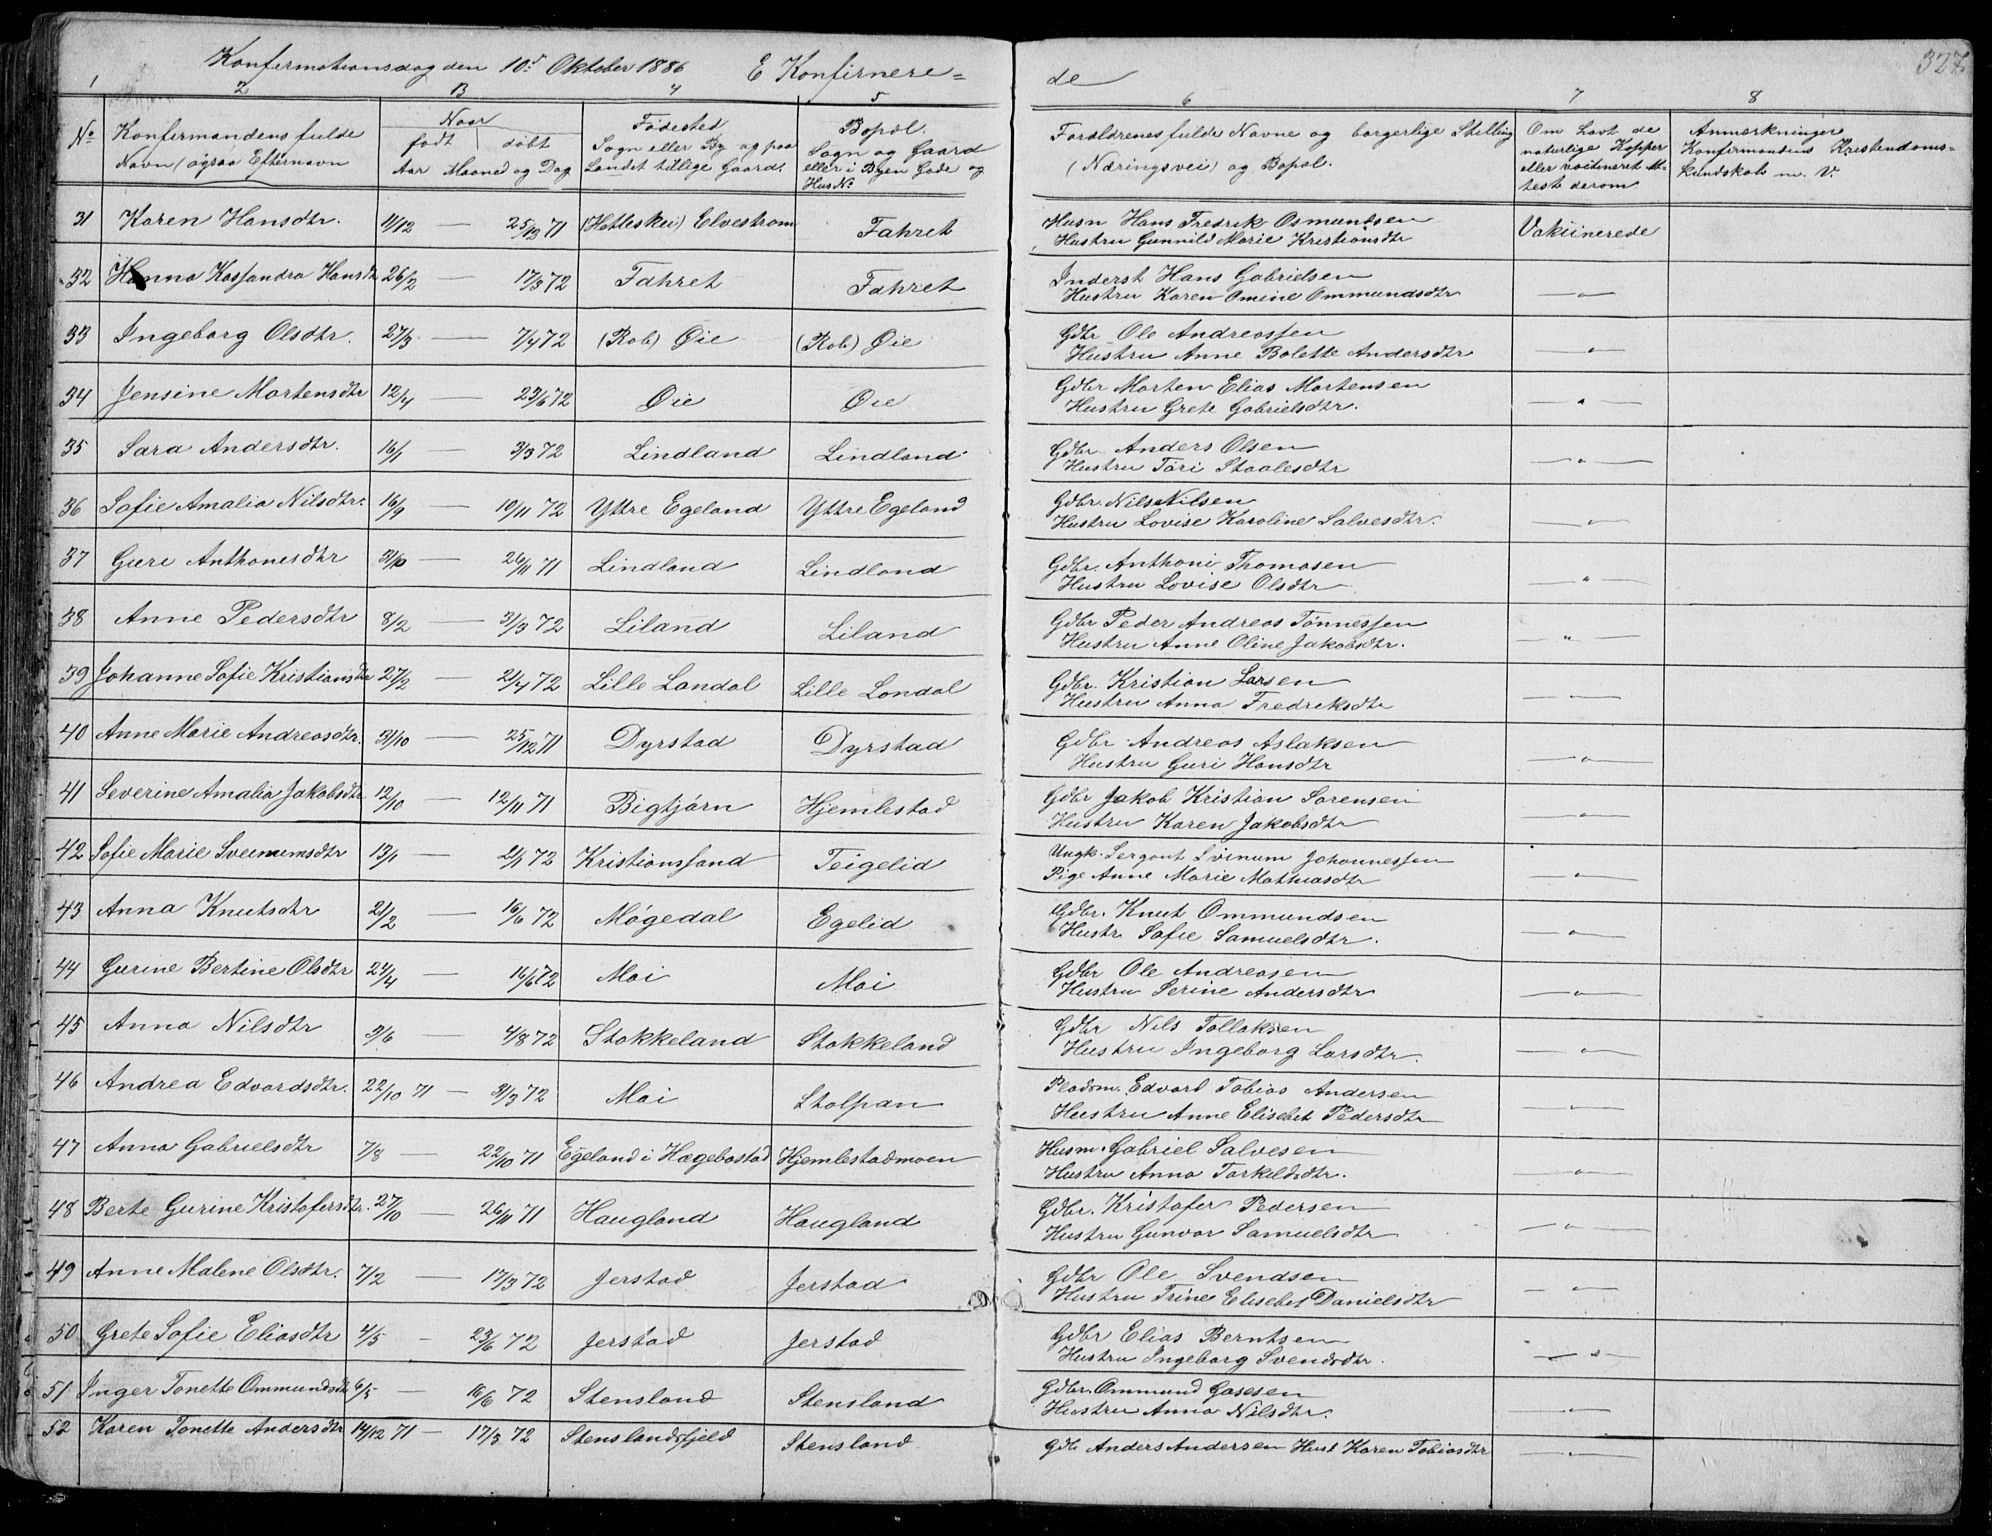 Konfirmationsdag den 10d Oktober 1886 E Konfirmere=
de 327.
1 2 3 4 5
6 7 8
No Konfirmandens fulde Navn (ogsaa Efternavn Naar født døbt Aar Maaned og Dag Fødested Sogn eller By og paa Landet tillige Gaard. Bopæl. Sogn og Gaard eller i Byen Gade og Hus No
Forældrenes fulde Navne og borgerlige Stilling (Næringsvei) og Bopæl. Om havt de naturlige Kopper eller vaccineret At- teste derom Anmærkninger Konfirmandens Kristendoms- kundskab m. V.
31 Karen Hansdtr. 11/12 — 25/12 71 (Hatleskei) Elvestrom Fahret
Husm Hans Fredrik Osmundsen Vakcinerede
Hustru Gunnild Marie Kristiansdtr
32 Hanna Kassandra Hansdtr 26/2 — 17/3 72 Fahret Fahret
Inderst Hans Gabrielsen — " —
Hustru Karen Omine Ommundsdtr
33 Ingeborg Olsdtr. 27/3 — 7/4 72 (Rob) Øie (Rob) Øie
Gdbr Ole Andreassen — " —
Hustru Anne Bolette Andersdtr
34 Jensine Mortensdtr 12/4 — 23/6 72 Øie Øie
Gdbr Morten Elias Mortensen — " —
Hustru Grete Gabrielsdtr.
35 Sara Andersdtr. 16/1 — 3/3 72 Lindland Lindland
Gdbr. Anders Olsen — " —
Hustru Tari Staalesdtr
36 Sofie Amalia Nilsdtr. 16/9 — 10/11 72 Yttre Egeland Yttre Egeland
Gdbr. Nils Nilsen — " —
Hustru Lovise Karoline Salvesdtr.
37 Guri Anthonesdtr 31/10 — 26/11 71 Lindland Lindland
Gdbr. Anthoni Thomasen — " —
Hustru Lovise Olsdtr
38 Anne Pedersdtr 8/2 — 31/3 72 Liland Liland
Gdbr Peder Andreas Tønnessen — " —
Hustru Anne Oline Jakobsdtr.
39 Johanne Sofie Kristiansdtr 27/2 — 21/4 72 Lille Landal Lille Landal
Gdbr. Kristian Larsen — " —
Hustru Anna Fredriksdtr
40 Anne Marie Andreasdtr. 31/10 — 25/12 71 Dyrstad Dyrstad
Gdbr Andreas Aslaksen — " —
Hustru Guri Hansdtr
41 Severine Amalia Jakobsdtr 12/10 — 12/11 71 Bigtjørn Hjemlestad
Gdbr Jakob Kristian Sørensen — " —
Hustru Karen Jakobsdtr
42 Sofie Marie Sveinumsdtr 13/1 — 21/1 72 Kristianssand Teigelid
Ungk. Sergant Svinum Johannessen — " —
Pige Anne Marie Mathiasdtr
43 Anna Knutsdtr 21/2 — 16/6 72 Møgedal Egelid
Gdbr. Knut Ommundsen — " —
Hustr Sofie Samuelsdtr.
44 Gurine Bertine Olsdtr 24/4 — 16/6 72 Moi Moi
Gdbr Ole Andreasen — " —
Hustru Serine Andersdtr
45 Anna Nilsdtr 9/6 — 4/8 72 Stokkeland Stokkeland
Gdbr Nils Tollaksen — " —
Hustru Ingeborg Larsdtr.
46 Andrea Edvardsdtr. 22/10 71 — 31/3 72 Moi Stolpan
Pladsm. Edvart Tobias Andersen — " —
Hustru Anne Elisebet Pedersdtr
47 Anna Gabrielsdtr 7/8 — 22/10 71 Egeland i Hægebostad Hjemlestadmoen
Husm. Gabriel Salvesen — " —
Hustru Anna Torkildsdtr.
48 Berte Gurine Kristofersdtr. 27/10 — 26/11 71 Haugland Haugland
Gdbr. Kristofer Pedersen — " —
Hustru Gunvor Samuelsdtr
49 Anne Malene Olsdtr. 7/2 — 17/3 72 Jerstad Jerstad
Gdbr Ole Svendsen — " —
Hustru Trine Elisebet Danielsdtr
50 Grete Sofie Eliasdtr 4/5 — 23/6 72 Jerstad Jerstad
Gdbr Elias Berntsen — " —
Hustru Ingeborg Svendsdtr.
51 Inger Tonette Ommundsdtr 6/5 — 16/6 72 Stensland Stensland
Gdbr. Ommund Gasesen — " —
Hustru Anna Nilsdtr.
52 Karen Tonette Andersdtr 14/12 71 — 17/3 72 Stenslandsfjeld Stensland
Gdb Anders Andersen Hust Karen Tobiasdtr — " —